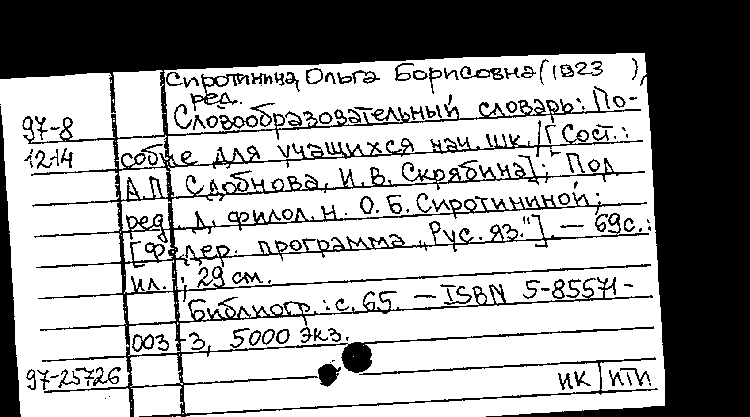 Сиротинина, Ольга Борисовна (1923 ),
ред.
97-8 Словообразовательный словарь: По-
12-14 собие для учащихся нач. шк. / [Сост.:
А.П. Сдобнова, И.В. Скрябина]; Под
ред. д. филол. н. О.Б. Сиротининой;
[Федер. программа „Рус. яз."]. — 69с.:
ил.; 29 см.
Библиогр.: с. 65. — ISBN 5-85571-
003-3, 5000 экз.
97-25726 ИК | ИТИ